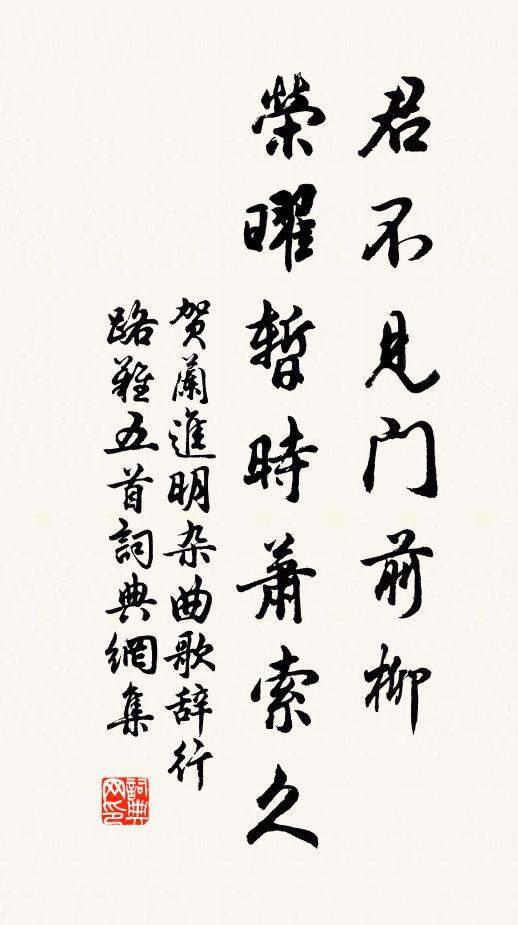 君不見門前柳
榮曜暫時蕭索久
贺蘭進明杂曲歌辞行
路難五首詞典網集
詞典网印